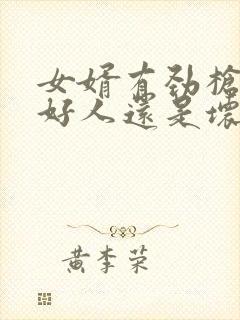 女婿有劲枪
好人還是壞
黄李荣